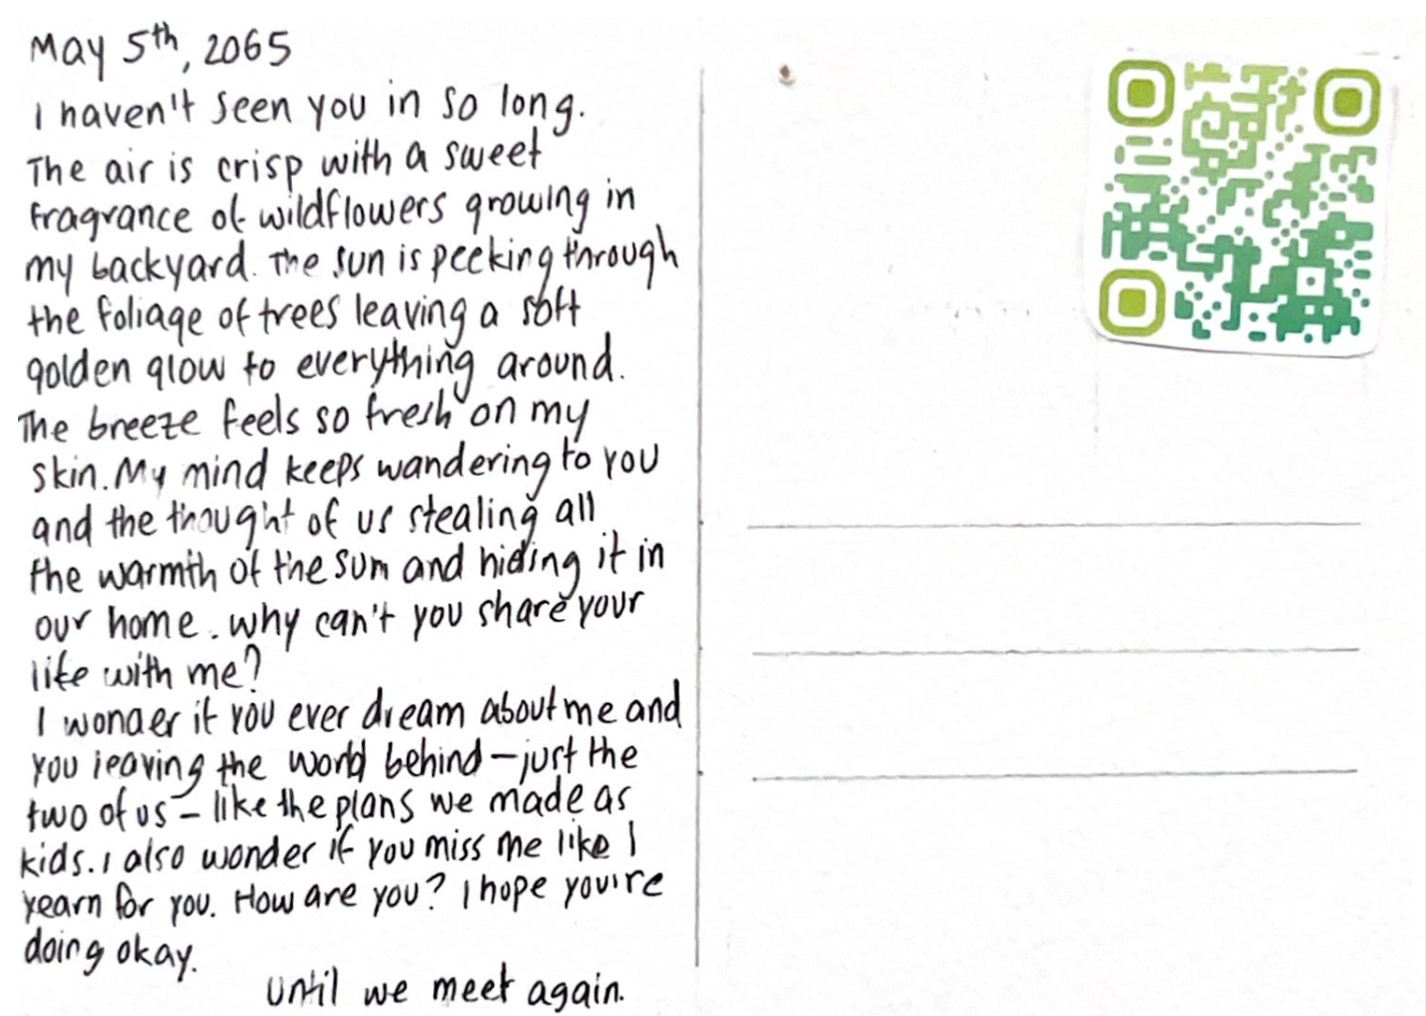 May 5th, 2065
I haven't seen you in so long.
The air is crisp with a sweet
fragrance of wildflowers growing in
my backyard. The sun is peeking through
the foliage of trees leaving a soft
golden glow to everything around.
The breeze feels so fresh on my
skin. My mind keeps wandering to you
and the thought of us stealing all
the warmth of the sum and hiding it in
our home. Why can't you share your
life with me?
I wonder if you ever dream about me and
you leaving the world behind – just the
two of us – like the plans we made as
kids. I also wonder if you miss me like I
yearn for you. How are you? I hope you're
doing okay.
Until we meet again.